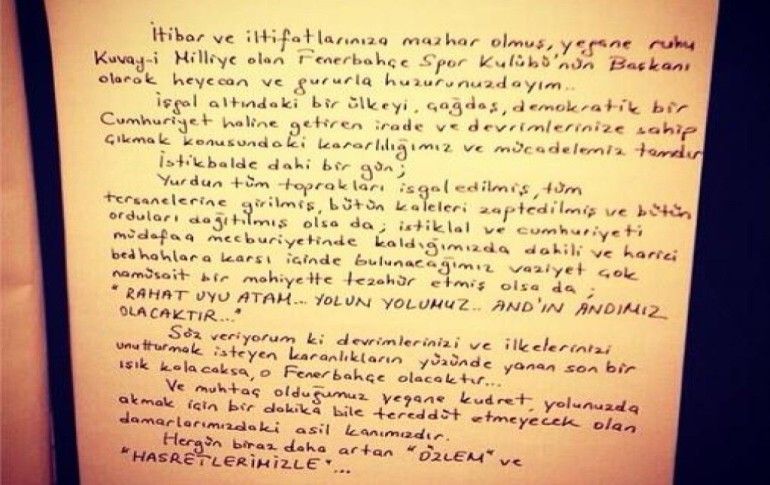 İtibar ve iltifatlarınıza mazhar olmuş, yegane ruhu
Kuvay-i Milliye olan Fenerbahçe Spor Kulübü'nün Başkanı
olarak heyecan ve gururla huzurunuzdayım..
İşgal altındaki bir ülkeyi, çağdaş, demokratik bir
Cumhuriyet haline getiren irade ve devrimlerinize sahip
çıkmak konusundaki kararlılığımız ve mücadelemiz tamdır
İstikbalde dahi bir gün;
Yurdun tüm toprakları işgal edilmiş, tüm
tersanelerine girilmiş, bütün kaleleri zaptedilmiş ve bütün
orduları dağıtılmış olsa da; istiklal ve cumhuriyeti
müdafaa mecburiyetinde kaldığımızda dahili ve harici
bedhahlara karşı içinde bulunacağımız vaziyet çok
namüsait bir mahiyette tezahür etmiş olsa da;
"RAHAT UYU ATAM... YOLUN YOLUMUZ.. AND'IN ANDIMIZ
OLACAKTIR..."
Söz veriyorum ki devrimlerinizi ve ilkelerinizi
unutturmak isteyen karanlıkların yüzünde yanan son bir
ışık kalacaksa, o Fenerbahçe olacaktır...
Ve muhtaç olduğumuz yegane kudret, yolunuzda
akmak için bir dakika bile tereddüt etmeyecek olan
damarlarımızdaki asil kanımızdır.
Hergün biraz daha artan "ÖZLEM" ve
"HASRETLERİMİZLE"...